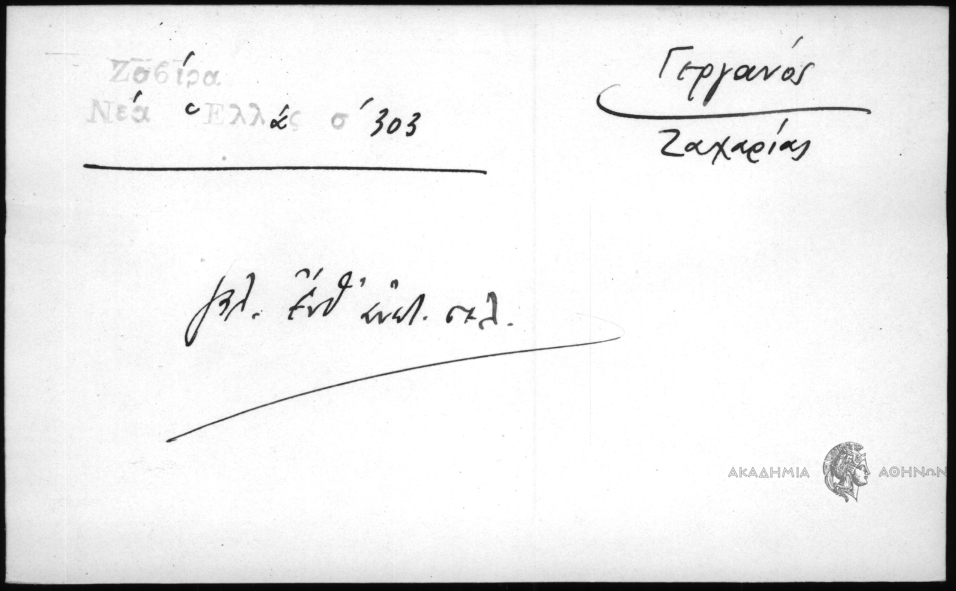 Ζαβίρα
Νέα Ἑλλάς σ' 303
Γεργανός
Ζαχαρίας
βλ. Ἔνθ' ἀνωτ. σελ.
ΑΚΑΔΗΜΙΑ ΑΘΗΝΩΝ